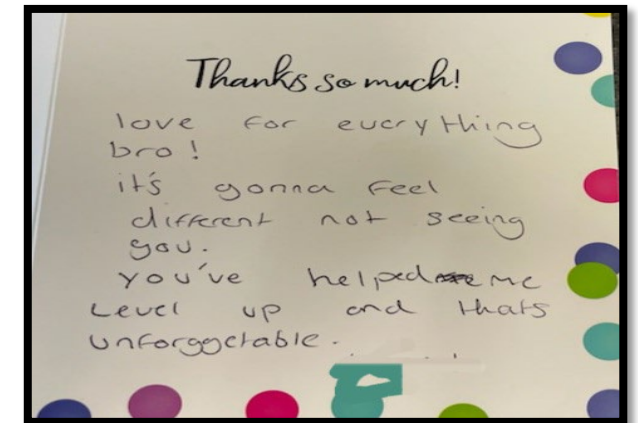 Thanks so much!
love for everything
bro!
it's gonna feel
different not seeing
you.
you've helped me
Level up and thats
unforggetable.